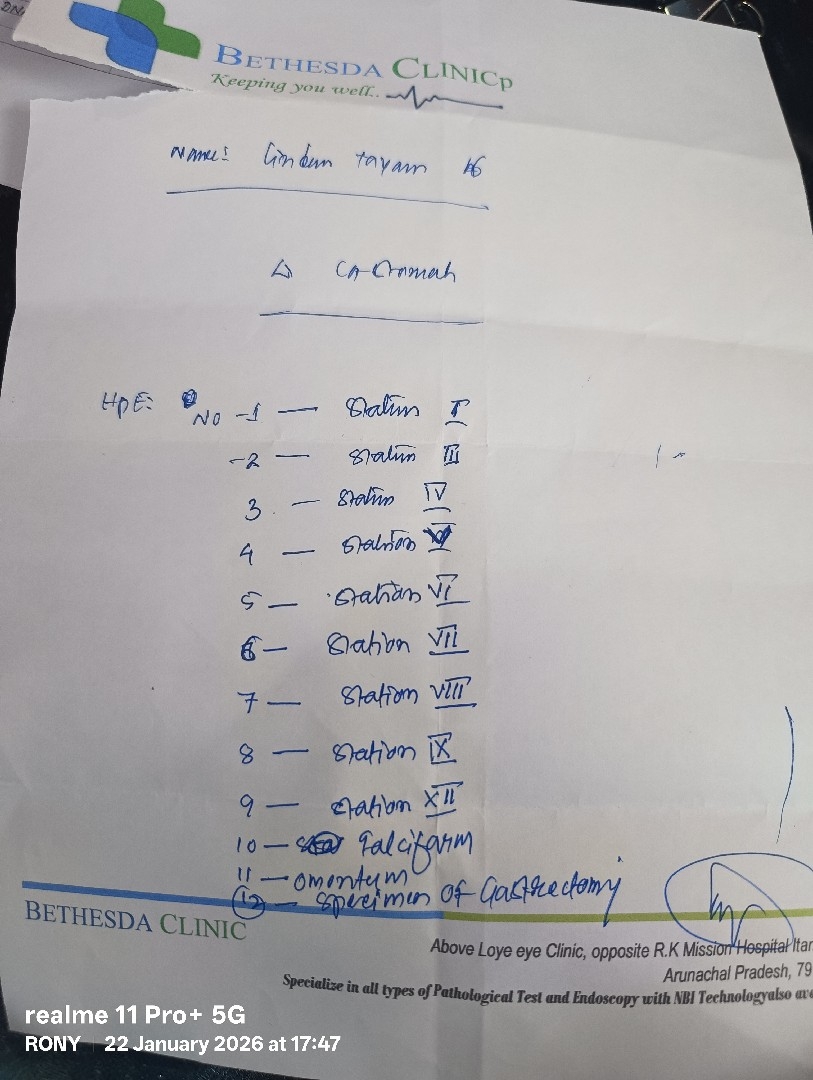 BETHESDA CLINICp
Keeping you well..
Name: tayam
Δ Ca-
HPE: No -1 — Station I
-2 — Station III
3 — Station IV
4 — Station V
5 — Station VI
6 — Station VII
7 — Station VIII
8 — Station IX
9 — Station XII
10 — Falcifarm
11 — omentum
12 — specimen of Gastrectomy
BETHESDA CLINIC
Above Loye eye Clinic, opposite R.K Mission Hospital Itar
Arunachal Pradesh, 79
Specialize in all types of Pathological Test and Endoscopy with NBI Technologyalso ave
realme 11 Pro+ 5G
RONY 22 January 2026 at 17:47